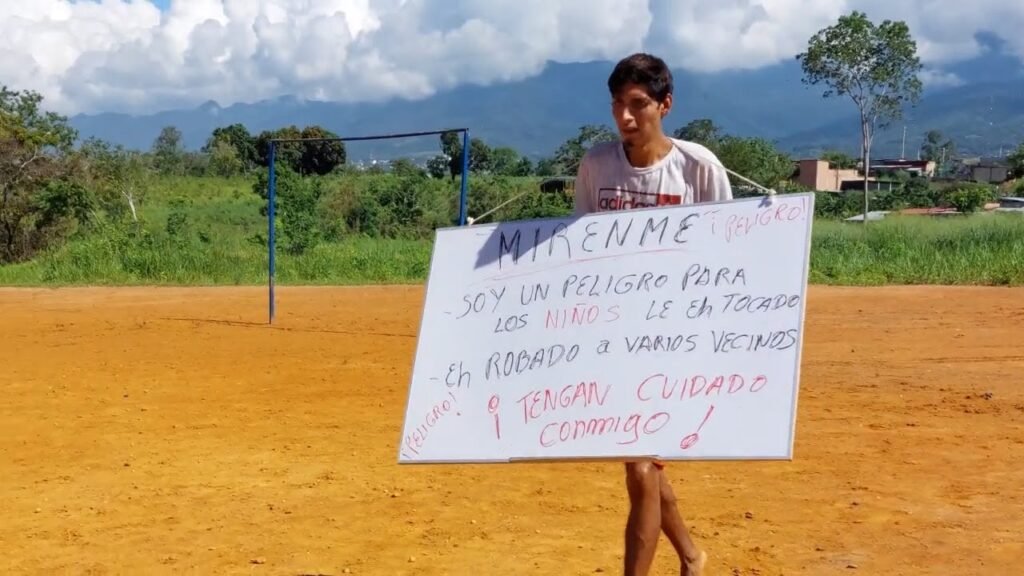 adidas
MIRENME ¡PELIGRO!
- SOY UN PELIGRO PARA
LOS NIÑOS LE Eh TOCADO
- Eh ROBADO a VARIOS VECINOS
¡PELIGRO!
¡ TENGAN CUIDADO
conmigo !